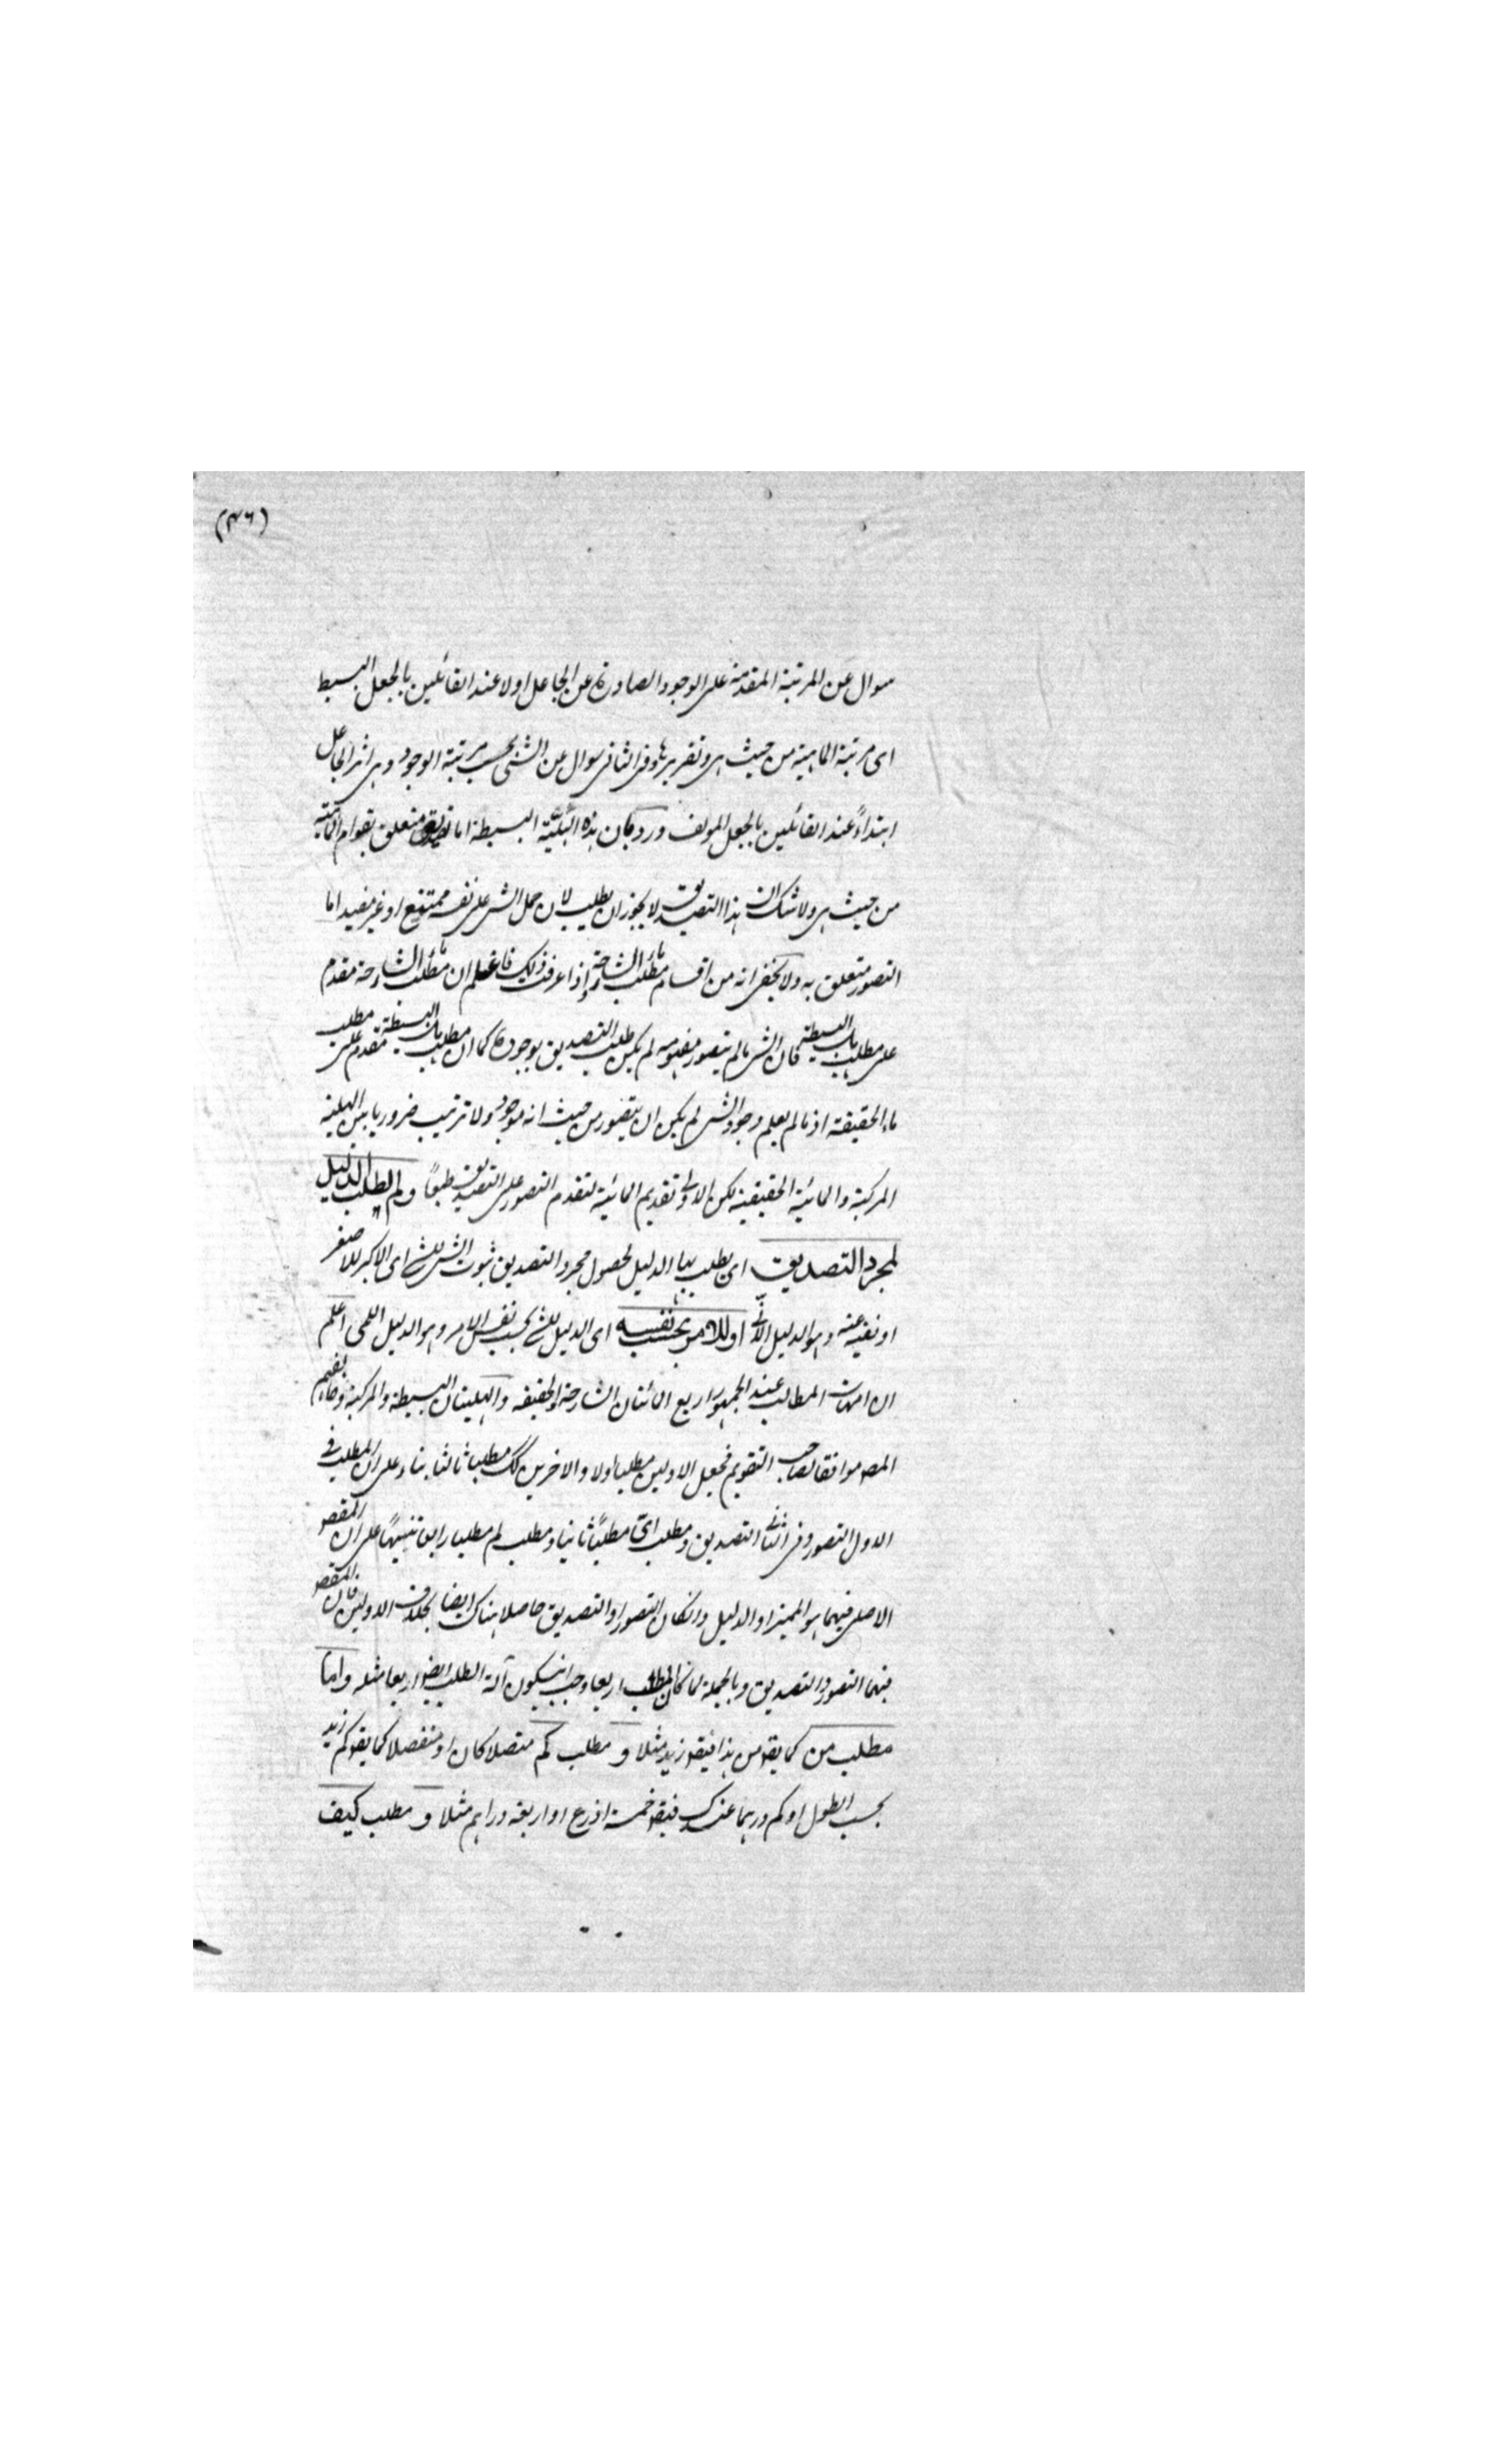 (٣٦)
سوال عن المرتبة المقدمة على الوجود الصادرة عن الجاعل اولا عند القائلين بالجعل البسيط
اى مرتبة الماهية من حيث هى وتقريرها وفى الثانى سوال عن الشئ بحسب مرتبة الوجود وهى اثر الجاعل
ابتداءً عند القائلين بالجعل المولف ورد بان هذه الهلية البسيطة اما تصديق متعلق بقوام الماهية
من حيث هى ولا شك ان هذا التصديق لا يجوز ان يطلب لان حمل الشى على نفسه ممتنع او غير مفيد اما
التصور متعلق به ولا يخفى انه من اقسام مطلب ما الشارحة واذا عرفت ذلك فاعلم ان مطلب ما الشارحة مقدم
على مطلب هل البسيطة فان الشى ما لم يتصور مفهومه لم يكن طلب التصديق بوجوده كما ان مطلب هل البسيطة مقدم على مطلب
ماء الحقيقة اذ ما لم يعلم وجود الشى لم يكن ان يتصور من حيث انه موجود ولا ترتيب ضروريا بين الهلية
المركبة والمائية الحقيقية لكن الاولى تقديم المائية لتقدم التصور على التصديق طبعاً ولم لطلب الدليل
لمجرد التصديق اى يطلب بها الدليل لحصول مجرد التصديق بثبوت الشى للشئ اى الاكبر للاصغر
او نفيه عنه وهو الدليل الانى او للامر بحسب نفسه اى الدليل للشئ بحسب نفس الامر وهو الدليل اللمى اعلم
ان امهات المطالب عند الجمهور اربع المائتان الشارحة والحقيقة والهليتان البسيطة والمركبة وخالفهم
المصـ موافقا لصاحب التقويم فجعل الاولين مطلبا اولا والاخرين كك مطلبا ثالثا بناء على ان المطلب فى
الاول التصور وفى الثانى التصديق ومطلب اىّ مطلبًا ثانيا ومطلب لم مطلبا رابعا تنبيهًا على ان المقصـ
الاصلى فيهما هو المميز او الدليل وانكان التصور او التصديق حاصلا هناك ايضا بخلاف الاولين فان المقصـ
فيهما التصور والتصديق وبالجملة لما كان المطلب اربعا وجب ان يكون آلة الطلب ايضا اربعا مثله واما
مطلب من كما يقو من هذا فيقو زيد مثلا و مطلب كم متصلا كان او منفصلا كما يقو كم زيد
بحسب الطول او كم درهما عندك فيقو خمسة اذرع او اربعة دراهم مثلا و مطلب كيف